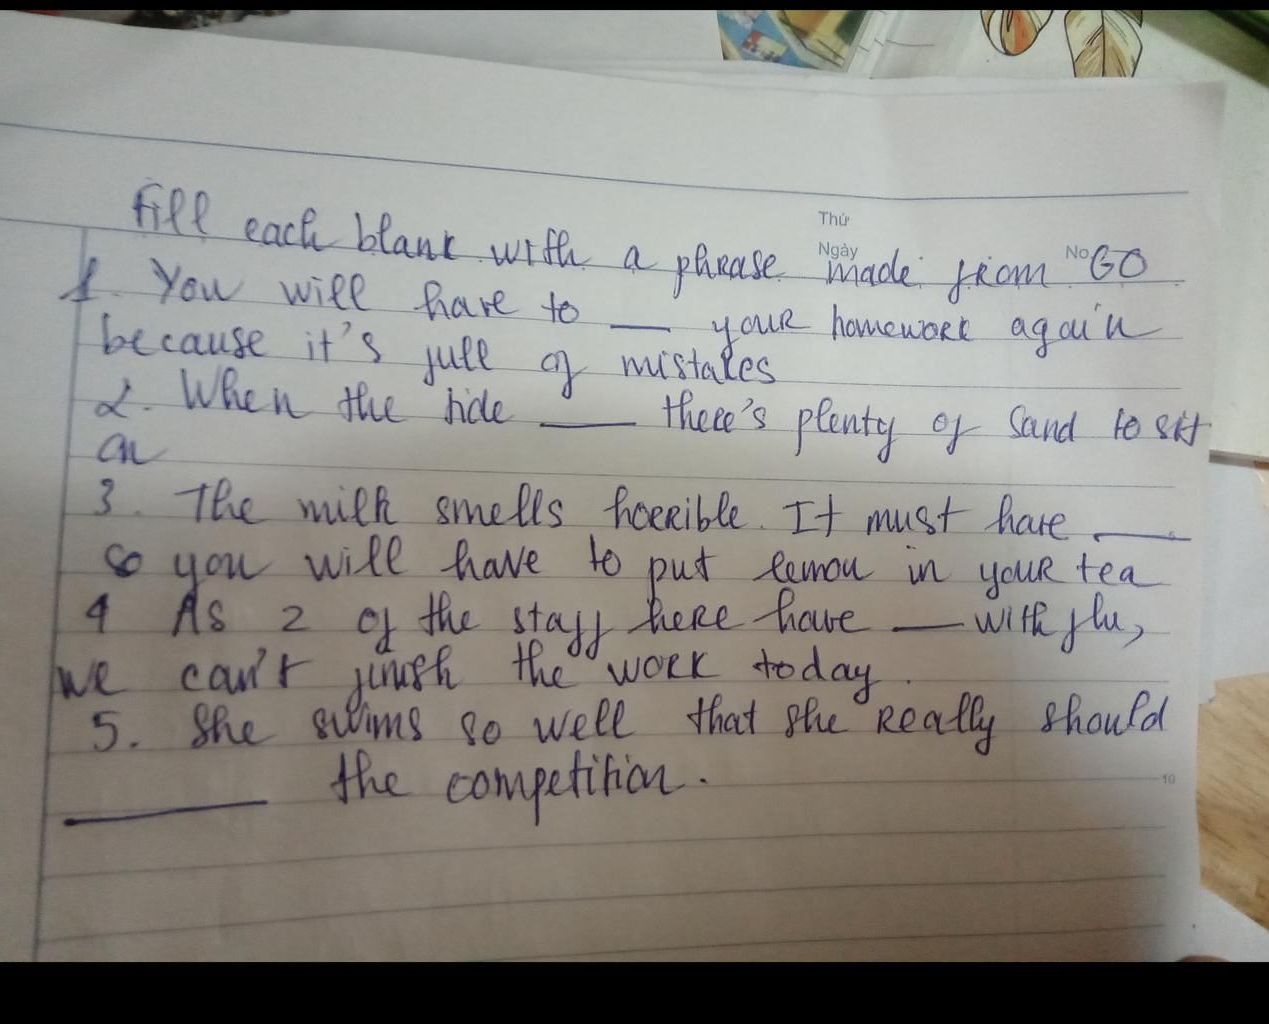 Thứ
Ngày
No.
Fill each blank with a phrase made from GO
1. You will have to ___ your homework again
because it's full of mistakes
2. When the tide ___ there's plenty of sand to sit
on
3. The milk smells horrible. It must have ___
so you will have to put lemon in your tea
4 As 2 of the staff here have ___ with flu,
we can't finish the work today.
5. She swims so well that she really should
___ the competition.
10